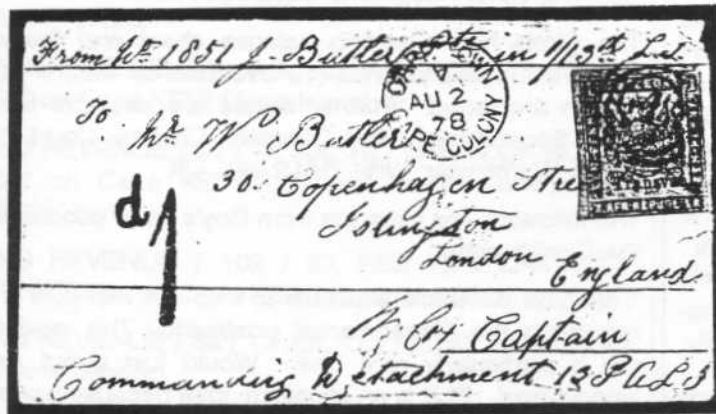 From No 1851 J. Butler Pte in 1/13th L.I.
CAPE COLONY
AU 2
78
To Mr W Butler
30. Copenhagen Street
Islington
London
England
d/1
Captain
Commanding Detachment 13 P A L I